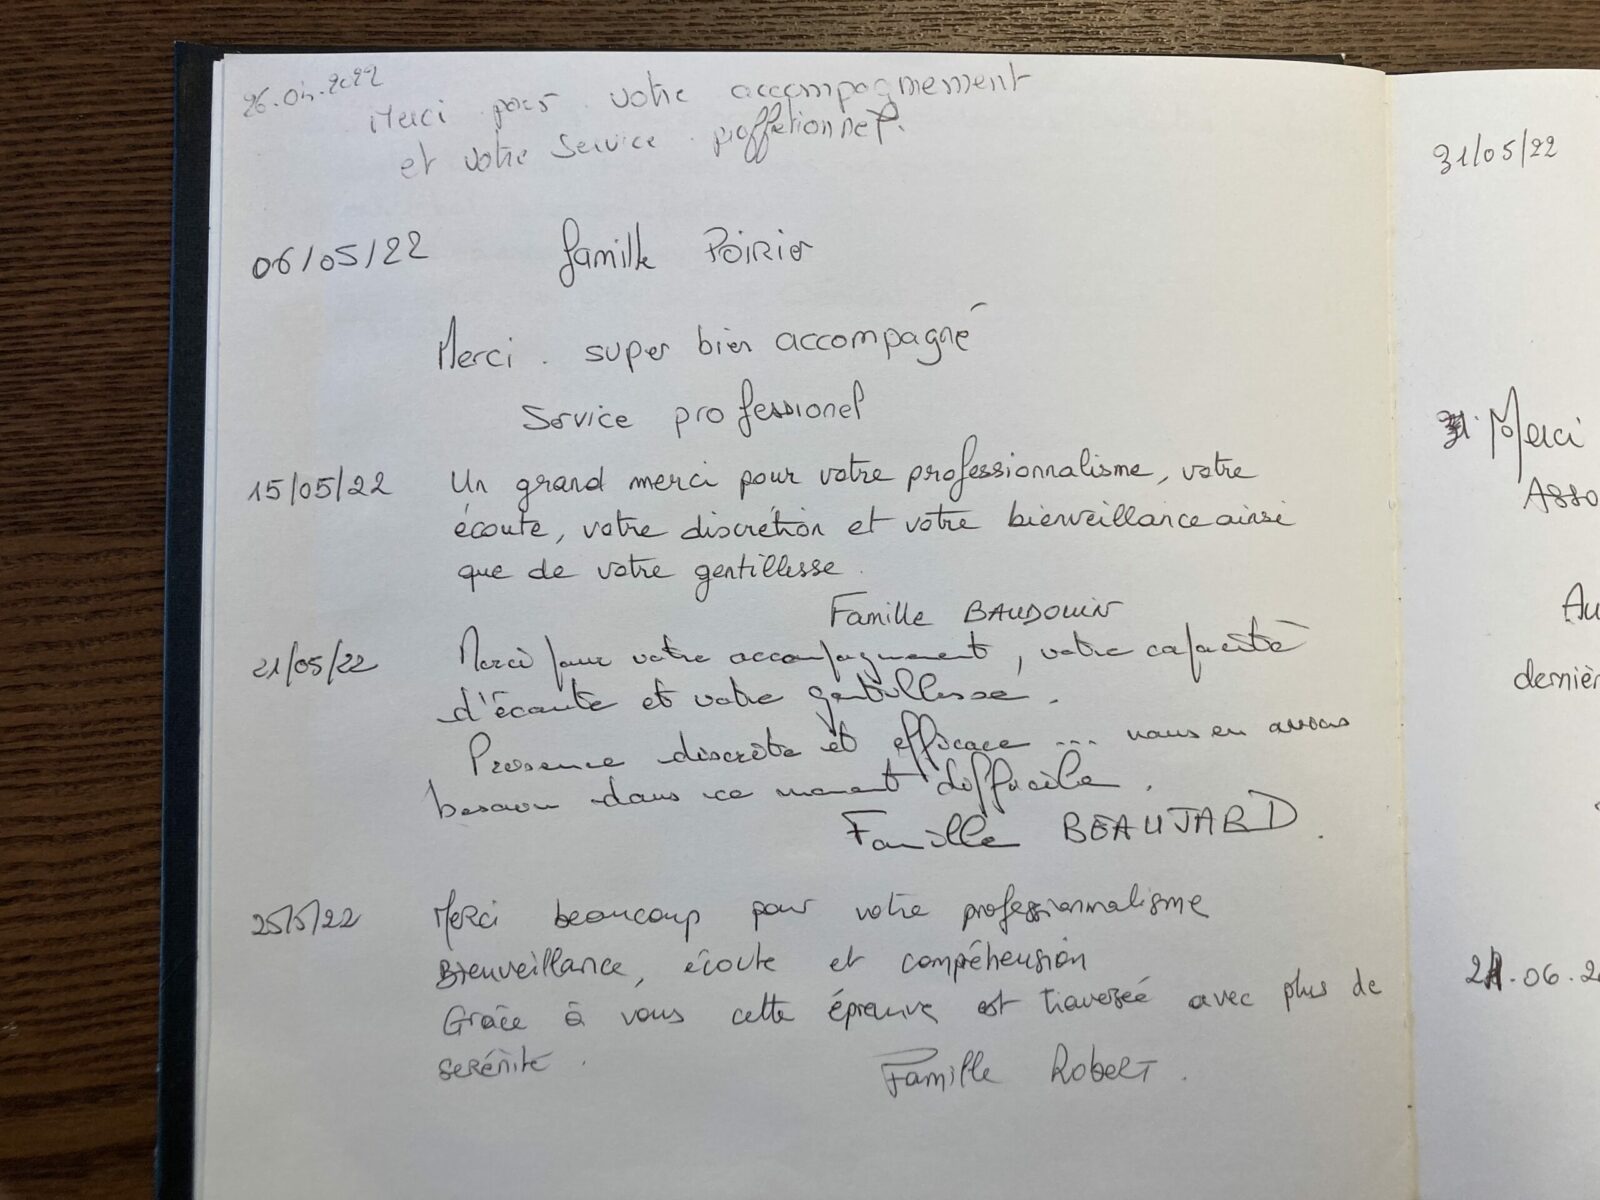 26.04.2022
Merci pour votre accompagnement
et votre service proffetionnel.
06/05/22 famille POIRIER
Merci. super bien accompagné
Service professionel
15/05/22 Un grand merci pour votre professionnalisme, votre
écoute, votre discrétion et votre bienveillance ainsi
que de votre gentillesse.
Famille BAUDOUIN
21/05/22 Merci pour votre accompagnement, votre capacité
d'écoute et votre gentillesse.
Présence discrète et efficace ... nous en avons
besoin dans ce moment difficile.
Famille BEAUJARD.
25/5/22 Merci beaucoup pour votre professionnalisme
Bienveillance, écoute et compréhension
Grâce à vous cette épreuve est traversée avec plus de
sérénité.
Famille Robert.
31/05/22
Merci
Asso
Au
dernièr
21.06.2